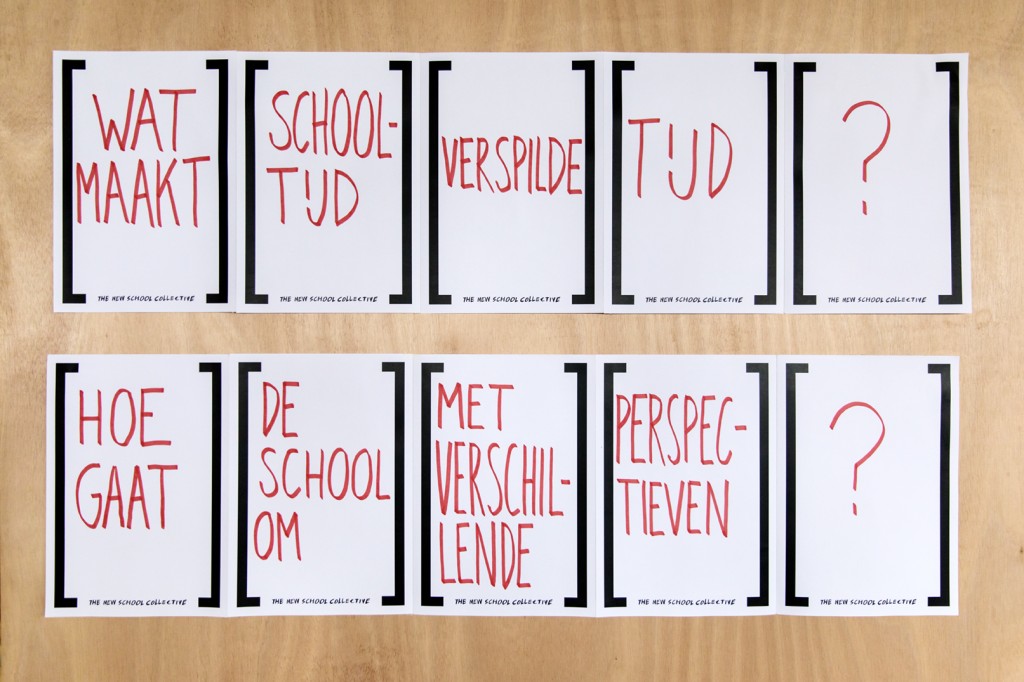 WAT
MAAKT
THE NEW SCHOOL COLLECTIVE
SCHOOL-
TIJD
THE NEW SCHOOL COLLECTIVE
VERSPILDE
THE NEW SCHOOL COLLECTIVE
TIJD
THE NEW SCHOOL COLLECTIVE
?
THE NEW SCHOOL COLLECTIVE
HOE
GAAT
THE NEW SCHOOL COLLECTIVE
DE
SCHOOL
OM
THE NEW SCHOOL COLLECTIVE
MET
VERSCHIL-
LENDE
THE NEW SCHOOL COLLECTIVE
PERSPEC-
TIEVEN
THE NEW SCHOOL COLLECTIVE
?
THE NEW SCHOOL COLLECTIVE